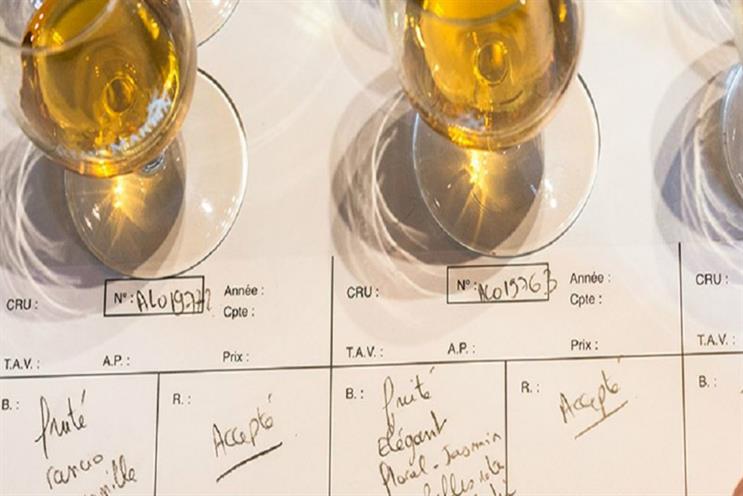 CRU : N° : ALO19772 Année :
Cpte :
T.A.V. : A.P. : Prix :
B. : fruité
rancio
R. : Accepté
CRU : N° : ALO19763 Année :
Cpte :
T.A.V. : A.P. : Prix :
B. : fruité
Elégant
Floral - Jasmin
R. : Accepté
CRU :
T.A.V. :
B. :